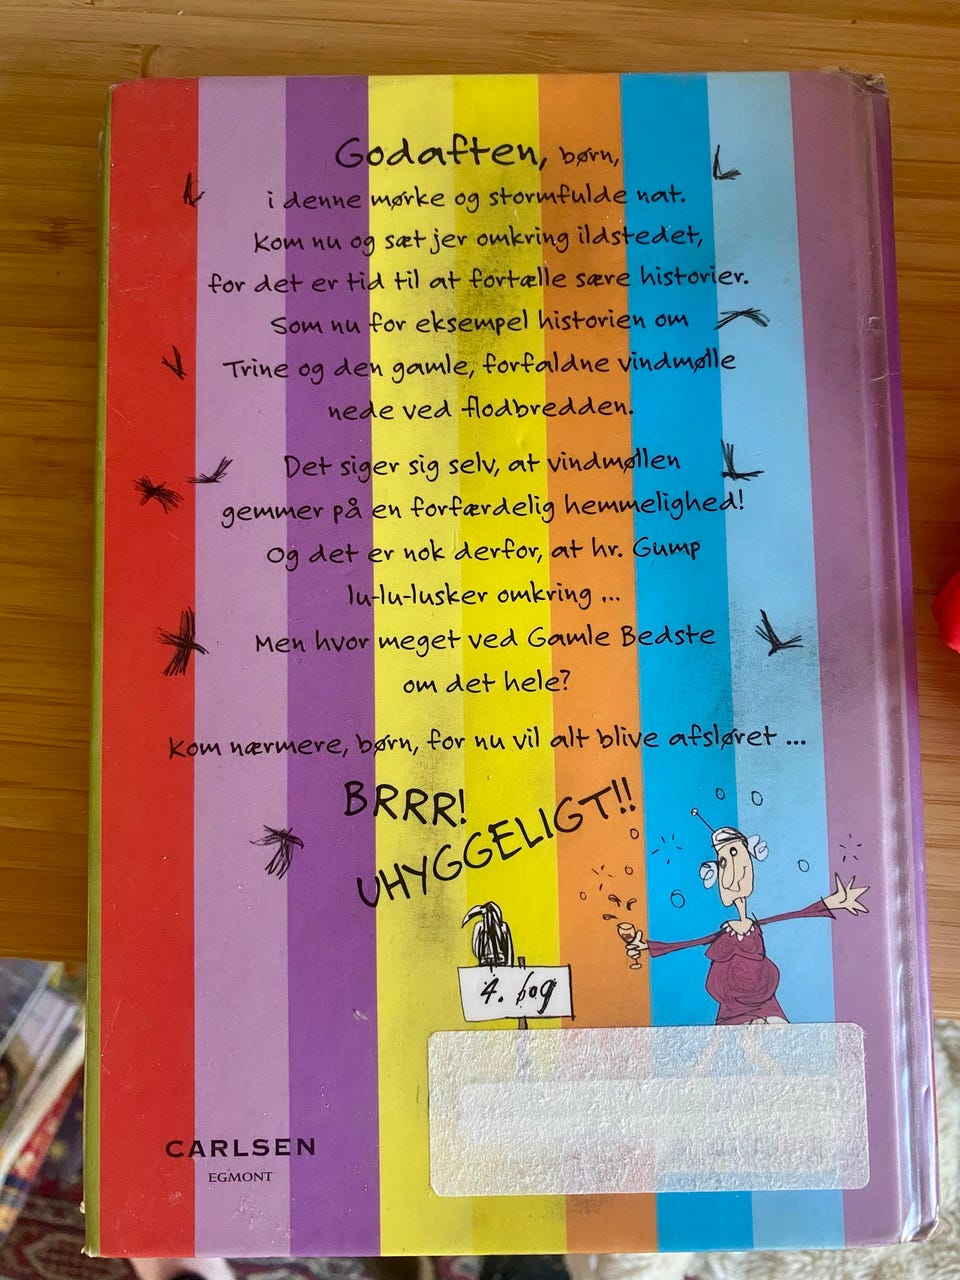 Godaften, børn,
i denne mørke og stormfulde nat.
Kom nu og sæt jer omkring ildstedet,
for det er tid til at fortælle sære historier.
Som nu for eksempel historien om
Trine og den gamle, forfaldne vindmølle
nede ved flodbredden.
Det siger sig selv, at vindmøllen
gemmer på en forfærdelig hemmelighed!
Og det er nok derfor, at hr. Gump
lu-lu-lusker omkring ...
Men hvor meget ved Gamle Bedste
om det hele?
Kom nærmere, børn, for nu vil alt blive afsløret ...
BRRR!
UHYGGELIGT!!
4. bog
CARLSEN
EGMONT